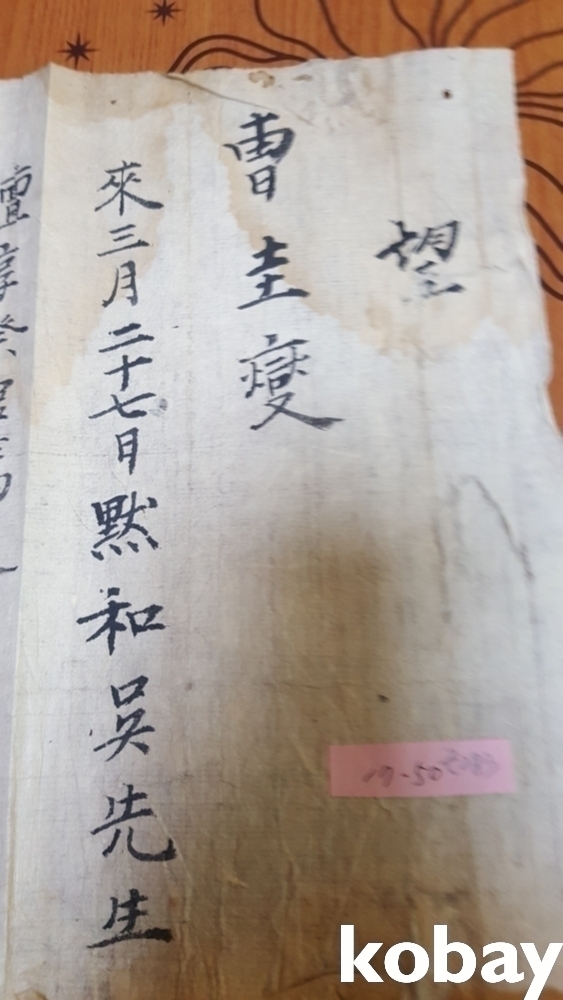 望
曺圭燮
來三月二十七日默和吳先生
19-50
kobay